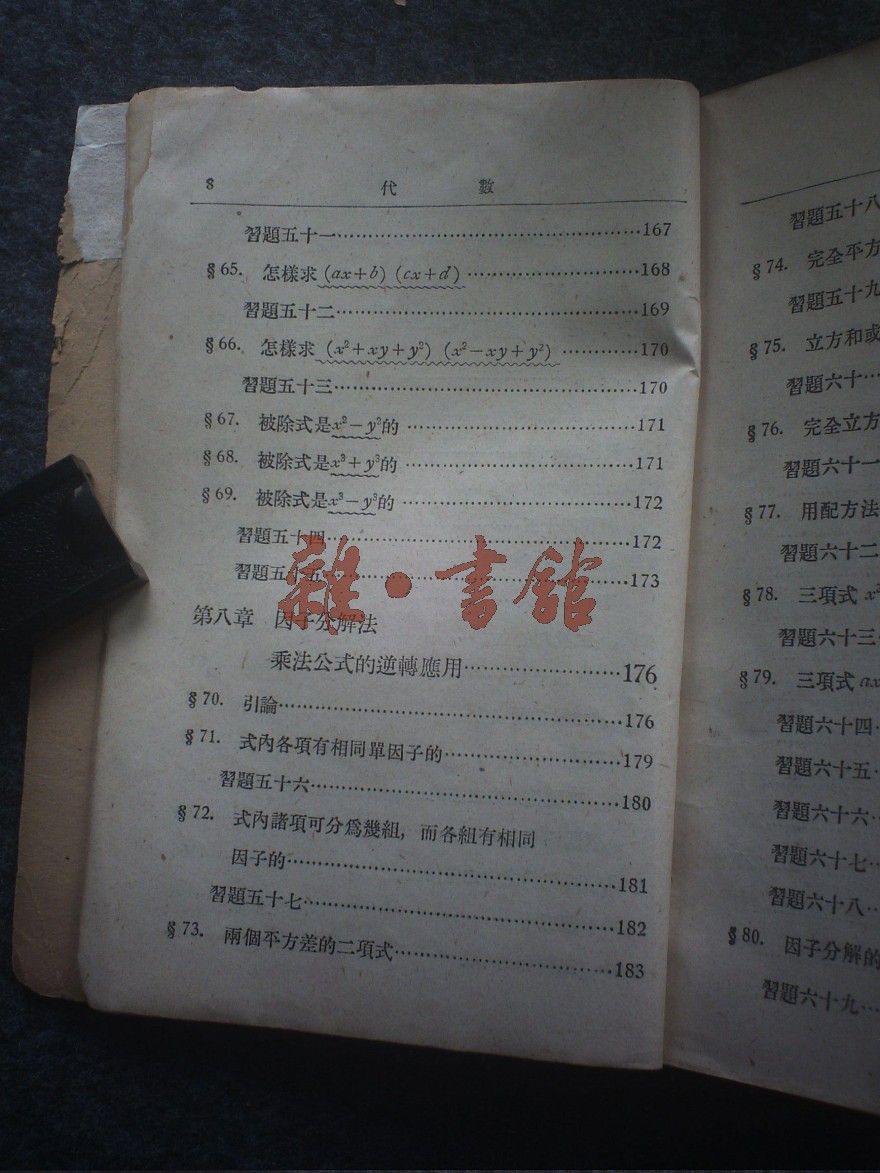 8 代數
習題五十一……167
§65. 怎樣求 (ax+b) (cx+d) ……168
習題五十二……169
§66. 怎樣求 (x²+xy+y²) (x²−xy+y²) ……170
習題五十三……170
§67. 被除式是x²−y²的 ……171
§68. 被除式是x³+y³的 ……171
§69. 被除式是x³−y³的 ……172
習題五十四……172
習題五十五……173
雜·書館
第八章 因子分解法
乘法公式的逆轉應用……176
§70. 引論……176
§71. 式內各項有相同單因子的……179
習題五十六……180
§72. 式內諸項可分爲幾組，而各組有相同
因子的……181
習題五十七……182
§73. 兩個平方差的二項式……183
習題五十八
§74. 完全平方
習題五十九
§75. 立方和或
習題六十…
§76. 完全立方
習題六十一
§77. 用配方法
習題六十二
§78. 三項式 x²
習題六十三
§79. 三項式 ax
習題六十四
習題六十五
習題六十六
習題六十七
習題六十八
§80. 因子分解的
習題六十九…